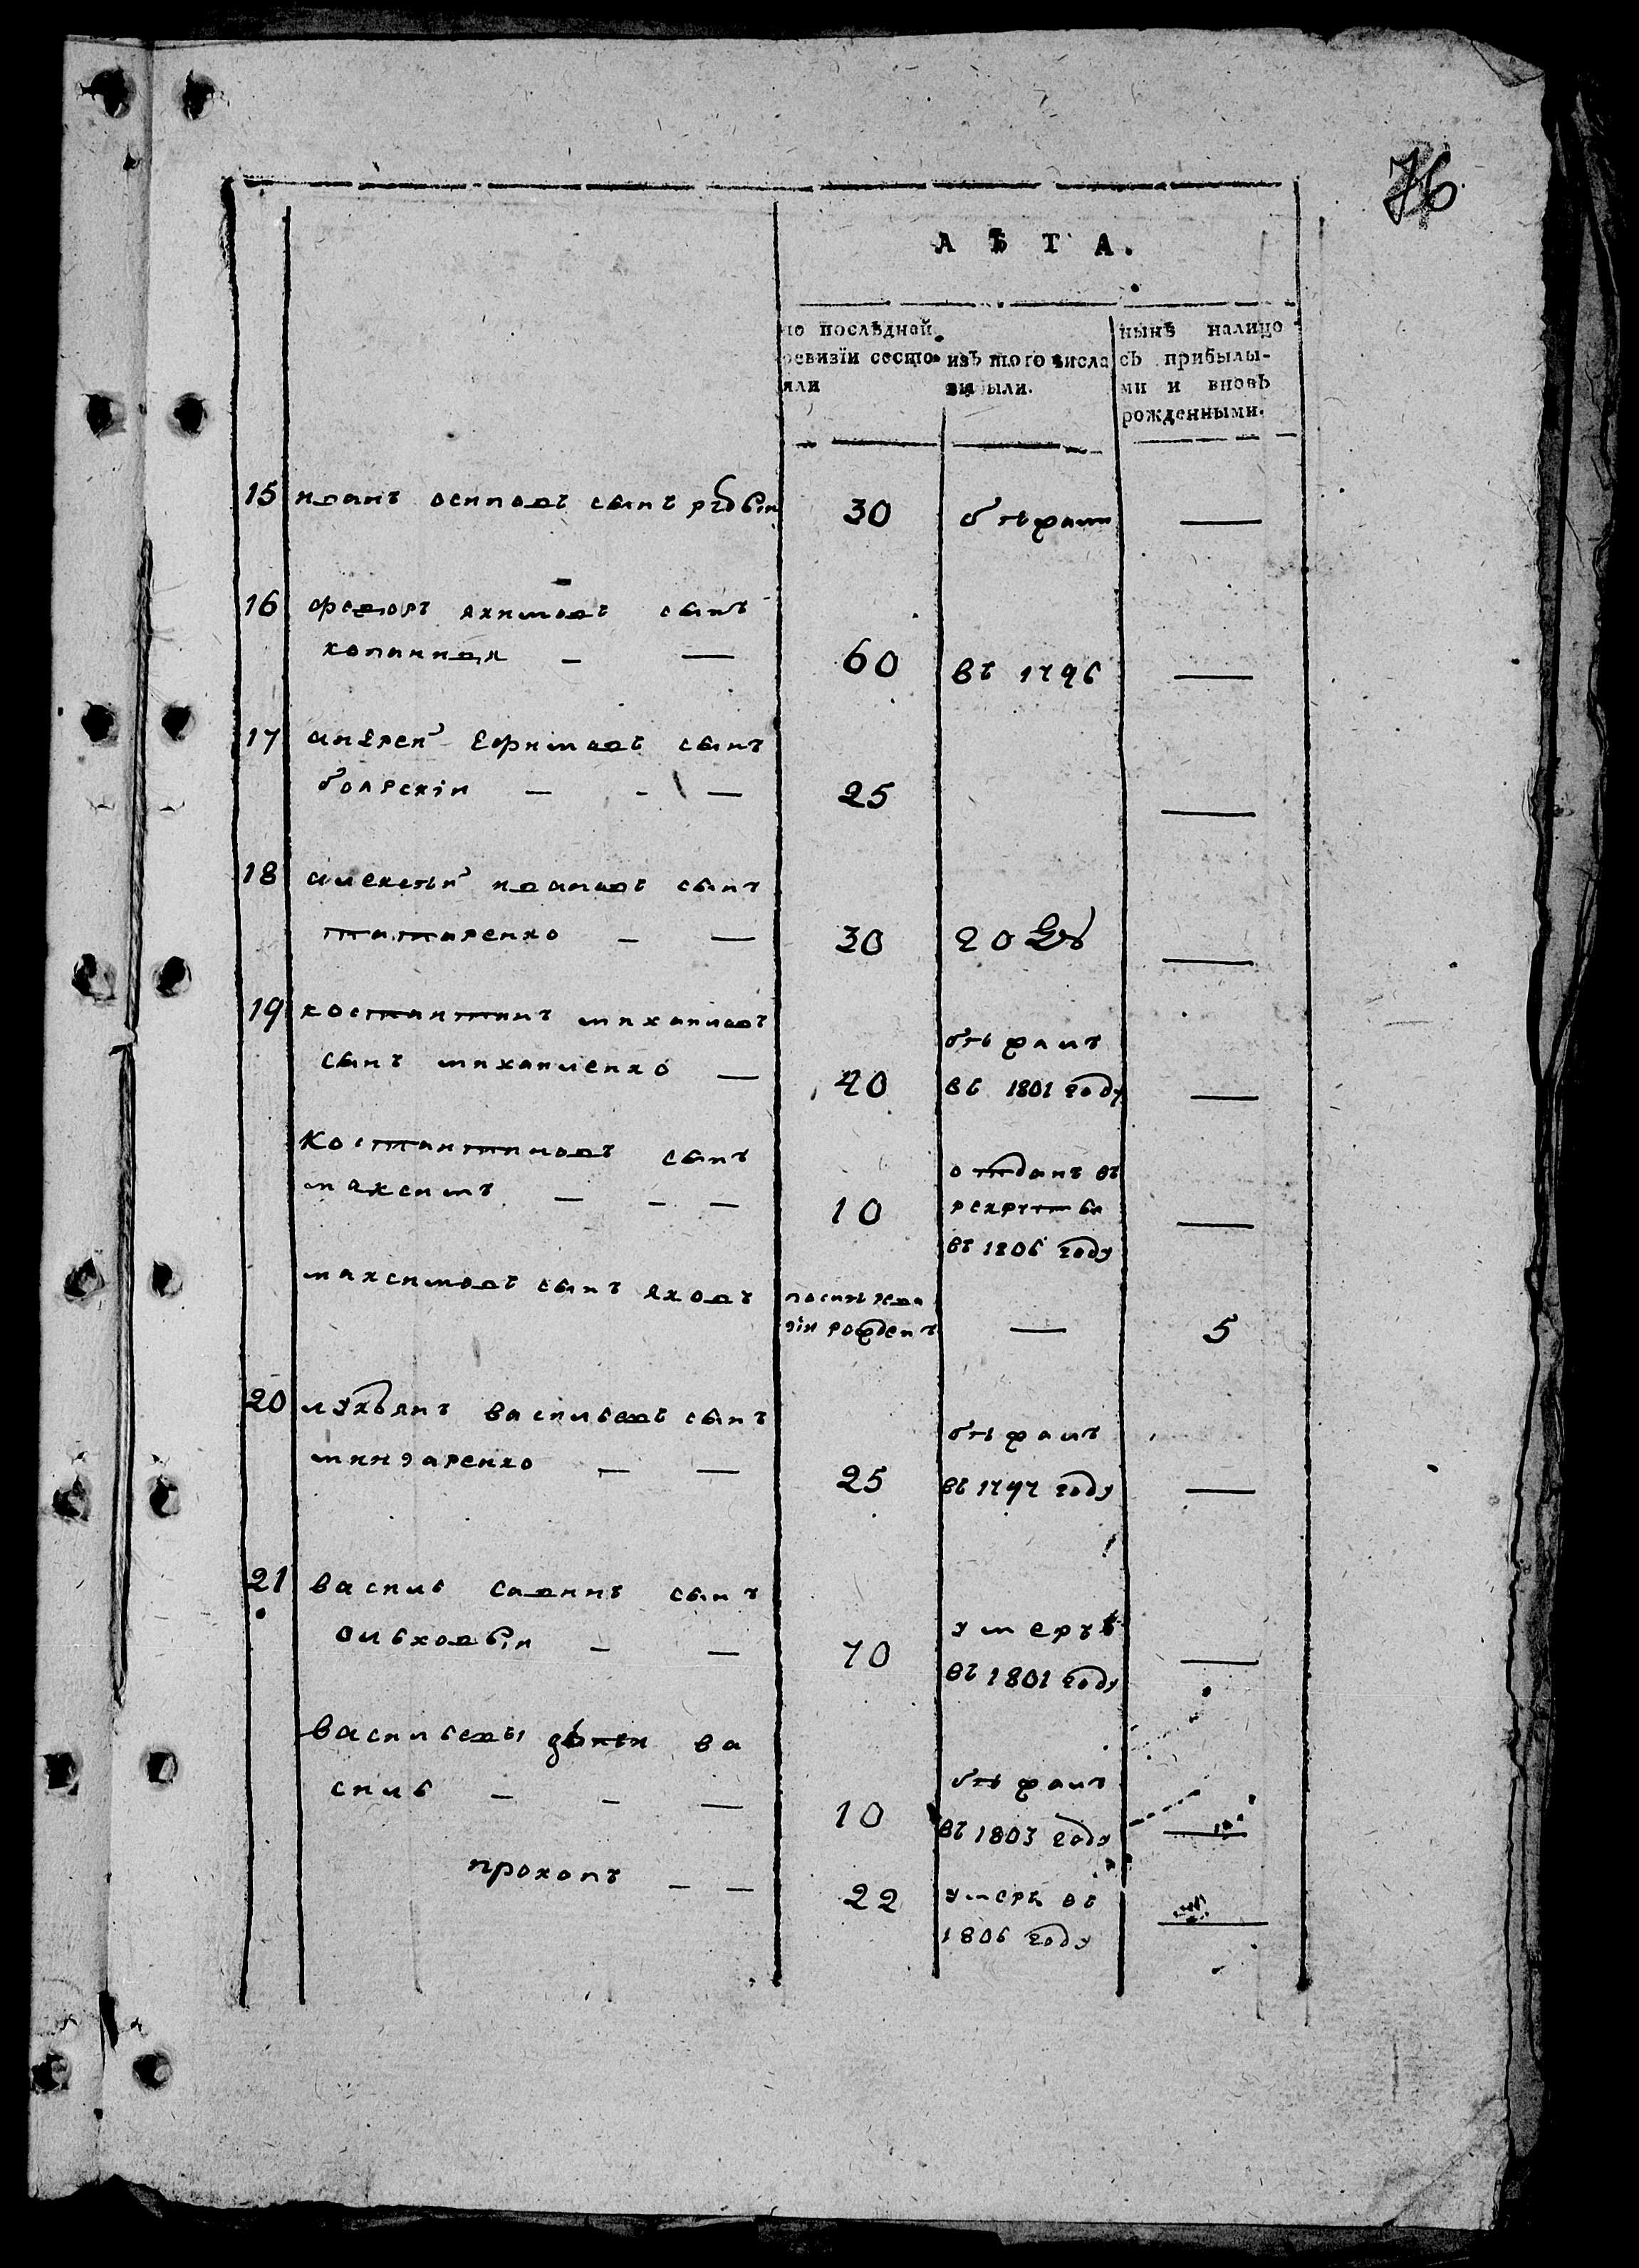 76
ЛѢТА.
по послѣдней
ревизїи состо-
яли
изъ того числа
выбыли.
нынѣ налицо
съ прибылы-
ми и вновь
рожденными.
15 иванъ осиповъ сынъ 30 бѣжалъ —
16 федоръ якимовъ сынъ
копанная — — 60 въ 1796 —
17 андрей ефимовъ сынъ
боярскiи — - — 25 —
18 алексѣй ивановъ сынъ
татаренко — — 30 20 —
19 костантинъ михаиловъ
сынъ михаиленко — 40
бѣжалъ
въ 1801 году —
Костантиновъ сынъ
максимъ — - — 10
отданъ въ
рекруты
въ 1806 году —
максимовъ сынъ яковъ
послѣ реви
зiи рожденъ — 5
20 лукьянъ васильевъ сынъ
минзаренко — — 25
бѣжалъ
въ 1797 году —
21 василь савинъ сынъ
ольховыи — — 70
умеръ
въ 1801 году —
васильевы дѣти ва
силь — - — 10
бѣжалъ
въ 1803 году —
прокопъ — — 22
умеръ въ
1806 году —